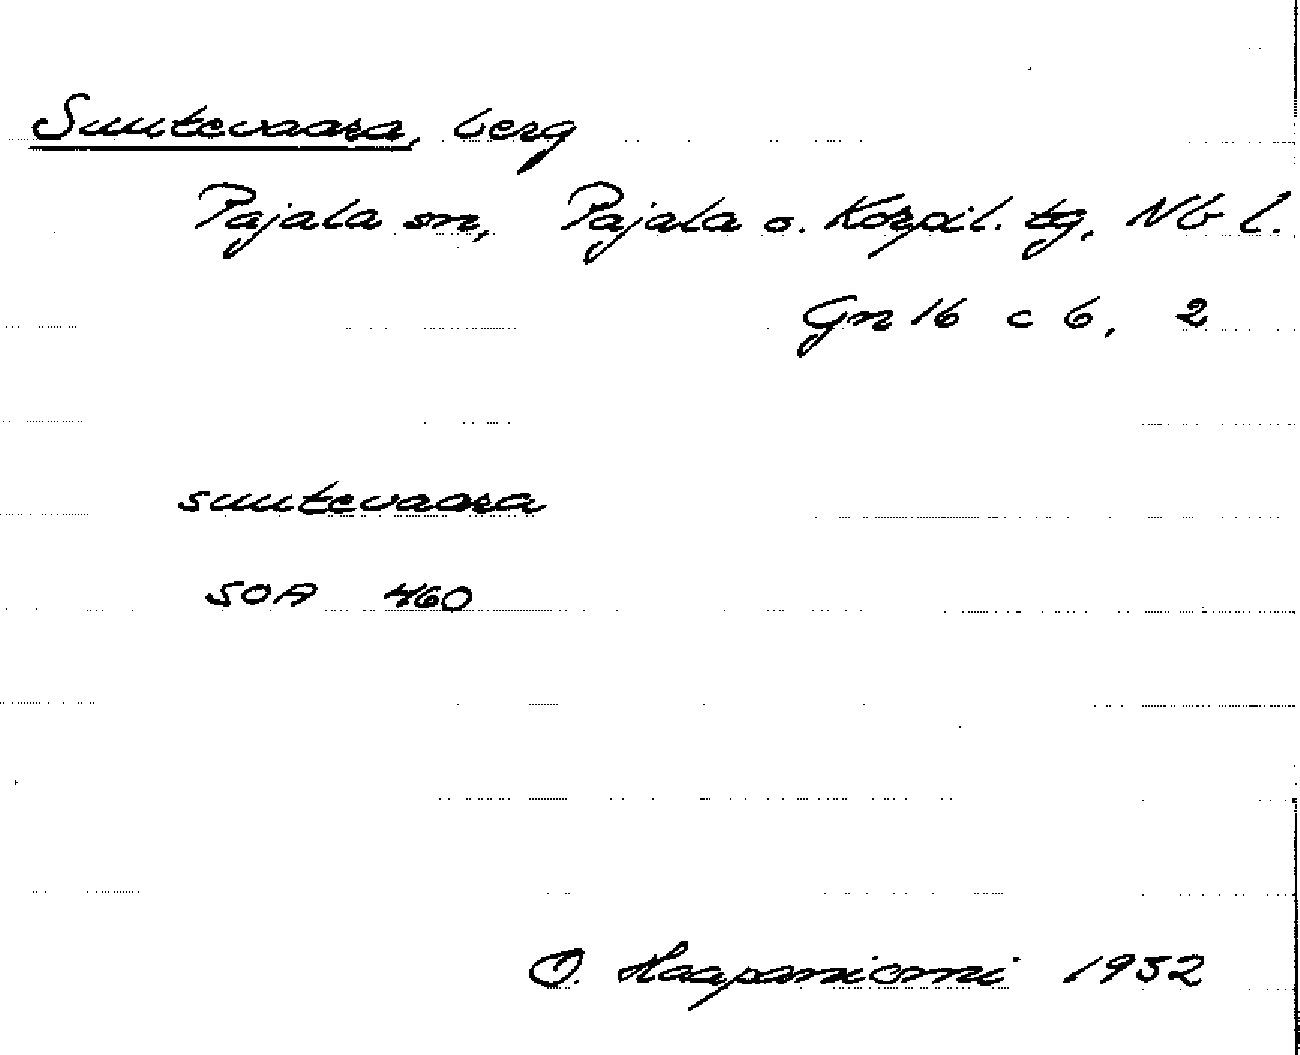 Suutevaara, berg
Pajala sn, Pajala o. Korpil. tg, Nb l.
Gn 16 c 6, 2
suutevaara
SOA 460
O. Haapaniemi 1952